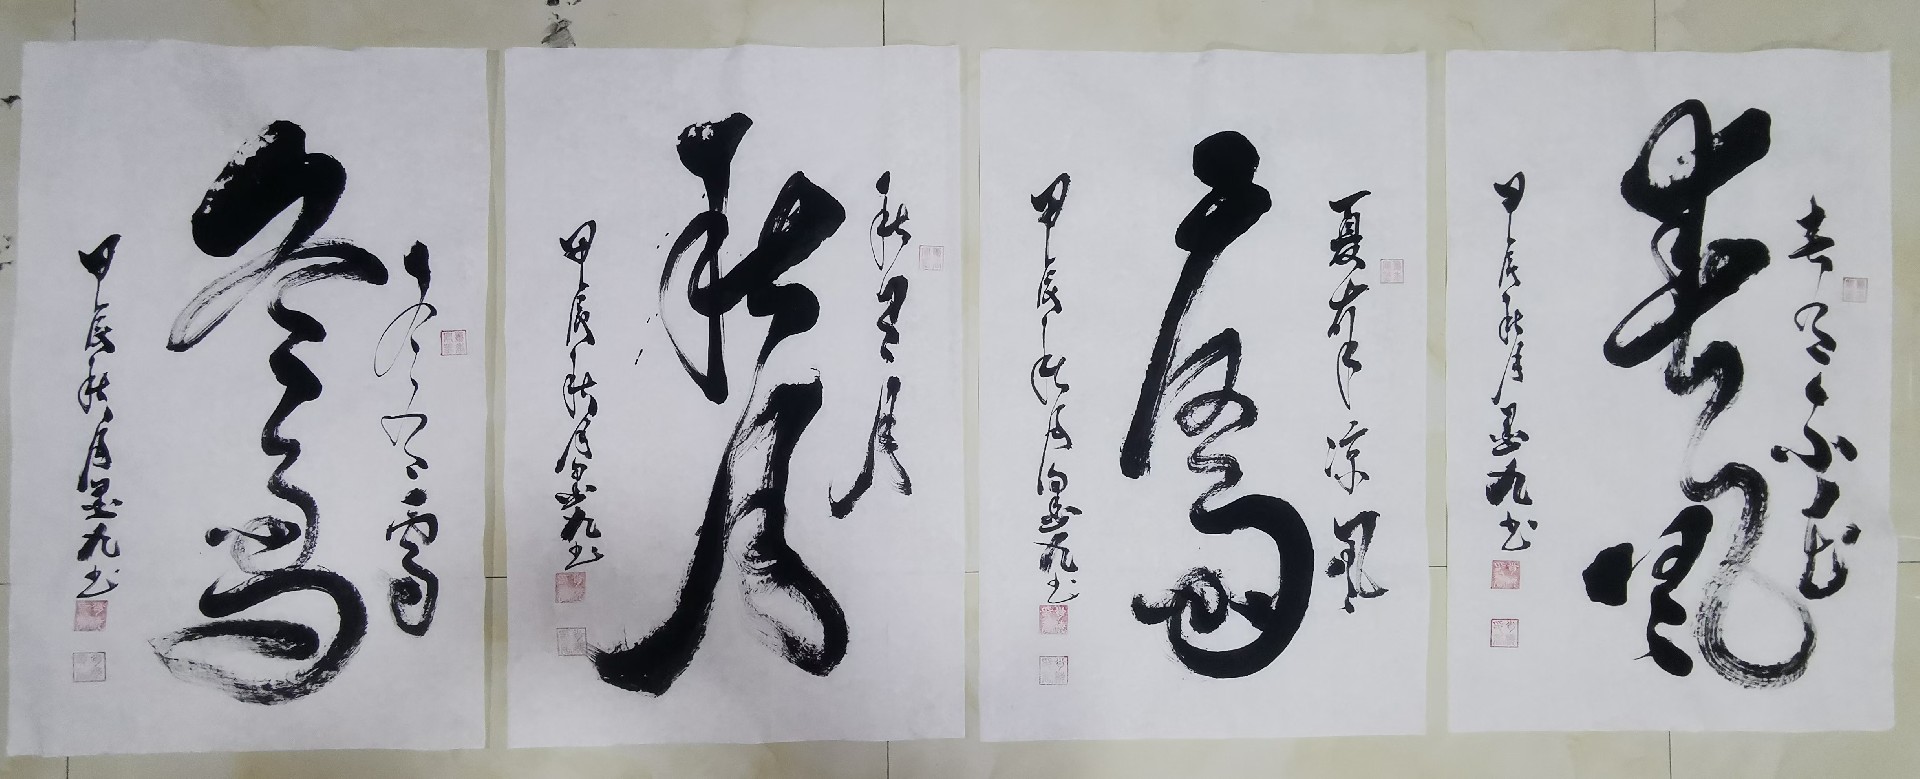 春有百花
春風
甲辰秋月墨九书
夏有凉風
甲辰秋月墨九书
秋有月
秋月
甲辰秋月墨九书
冬有雪
冬雪
甲辰秋月墨九书